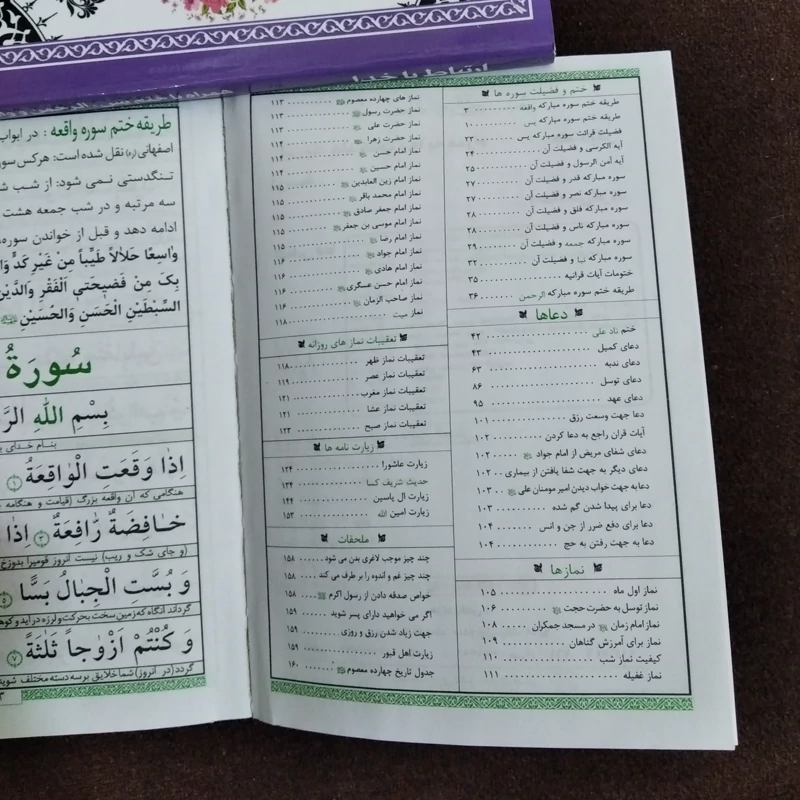 ارتباط با خدا
ختم و فضیلت سوره ها
طریقه ختم سوره مبارکه واقعه ........ ۳
طریقه ختم سوره مبارکه یس ........ ۱۰
فضیلت قرائت سوره مبارکه یس ...... ۲۳
آیه الکرسی و فضیلت آن ........ ۲۴
آیه آمن الرسول و فضیلت آن ........ ۲۵
سوره مبارکه قدر و فضیلت آن ........ ۲۷
سوره مبارکه نصر و فضیلت آن ........ ۲۷
سوره مبارکه فلق و فضیلت آن ........ ۲۸
سوره مبارکه ناس و فضیلت آن ........ ۲۸
سوره مبارکه جمعه و فضیلت آن ........ ۲۹
سوره مبارکه نبا و فضیلت آن ........ ۳۲
ختومات آیات قرانیه ........ ۳۵
طریقه ختم سوره مبارکه الرحمن ........ ۳۶
دعاها
ختم ناد علی ........ ۴۲
دعای کمیل ........ ۴۳
دعای ندبه ........ ۶۳
دعای توسل ........ ۸۶
دعای عهد ........ ۹۵
دعا جهت وسعت رزق ........ ۱۰۱
آیات قران راجع به دعا کردن ........ ۱۰۲
دعای شفای مریض از امام جواد ........ ۱۰۲
دعای دیگر به جهت شفا یافتن از بیماری .. ۱۰۲
دعا به جهت خواب دیدن امیر مومنان علی .. ۱۰۳
دعا برای پیدا شدن گم شده ........ ۱۰۳
دعا برای دفع ضرر از جن و انس ........ ۱۰۴
دعا به جهت رفتن به حج ........ ۱۰۴
نمازها
نماز اول ماه ........ ۱۰۵
نماز توسل به حضرت حجت ........ ۱۰۶
نماز امام زمان در مسجد جمکران ........ ۱۰۸
نماز برای آمرزش گناهان ........ ۱۰۹
کیفیت نماز شب ........ ۱۱۰
نماز غفیله ........ ۱۱۱
نماز های چهارده معصوم ........ ۱۱۳
نماز حضرت رسول ........ ۱۱۳
نماز حضرت علی ........ ۱۱۳
نماز حضرت زهرا ........ ۱۱۴
نماز امام حسن ........ ۱۱۴
نماز امام حسین ........ ۱۱۴
نماز امام زین العابدین ........ ۱۱۵
نماز امام محمد باقر ........ ۱۱۵
نماز امام جعفر صادق ........ ۱۱۵
نماز امام موسی بن جعفر ........ ۱۱۵
نماز امام رضا ........ ۱۱۵
نماز امام جواد ........ ۱۱۶
نماز امام هادی ........ ۱۱۶
نماز امام حسن عسگری ........ ۱۱۶
نماز صاحب الزمان ........ ۱۱۶
نماز میت ........ ۱۱۸
تعقیبات نماز های روزانه
تعقیبات نماز ظهر ........ ۱۱۸
تعقیبات نماز عصر ........ ۱۱۹
تعقیبات نماز مغرب ........ ۱۲۱
تعقیبات نماز عشا ........ ۱۲۱
تعقیبات نماز صبح ........ ۱۲۳
زیارت نامه ها
زیارت عاشورا ........ ۱۲۴
حدیث شریف کسا ........ ۱۳۴
زیارت ال یاسین ........ ۱۴۴
زیارت امین الله ........ ۱۵۳
ملحقات
چند چیز موجب لاغری بدن می شود ..... ۱۵۸
چند چیز غم و اندوه را بر طرف می کند ۱۵۸
خواص صدقه دادن از رسول اکرم ..... ۱۵۸
اگر می خواهید دارای پسر شوید ..... ۱۵۹
جهت زیاد شدن رزق و روزی ..... ۱۵۹
زیارت اهل قبور ........ ۱۵۹
جدول تاریخ چهارده معصوم ........ ۱۶۰
طریقه ختم سوره واقعه : در ابواب
اصفهانی (ره) نقل شده است: هرکس سور
تنگدستی نمی شود: از شب ش
سه مرتبه و در شب جمعه هشت
ادامه دهد و قبل از خواندن سوره،
واسِعًا حَلالاً طَیِّباً مِنْ غَیرِ کَدٍّ وَا
بِکَ مِنْ فَضیحَتیِ اَلْفَقْرِ وَالدَّیْنِ
السِّبْطَیْنِ الْحَسَنِ وَالْحُسَیْنِ
سُورَةُ
بِسْمِ اللهِ الرَّ
بنام خدای
اِذا وَقَعَتِ الْواقِعَةُ ۱
هنگامی که آن واقعه بزرگ (قیامت و هنگامه
خافِضَةٌ رافِعَةٌ ۳ اِذا
(و جای شک و ریب) نیست آنروز قومیرا بدوزخ
وَ بُسَّتِ الْجِبالُ بَسًّا ۵
گرداند آنگاه که زمین سخت بحرکت و لرزه درآید و کوه
وَ کُنْتُمْ اَزْوٰجاً ثَلٰثَةً ۷
گردد (در آنروز) شما خلایق بر سه دسته مختلف شوید
۳